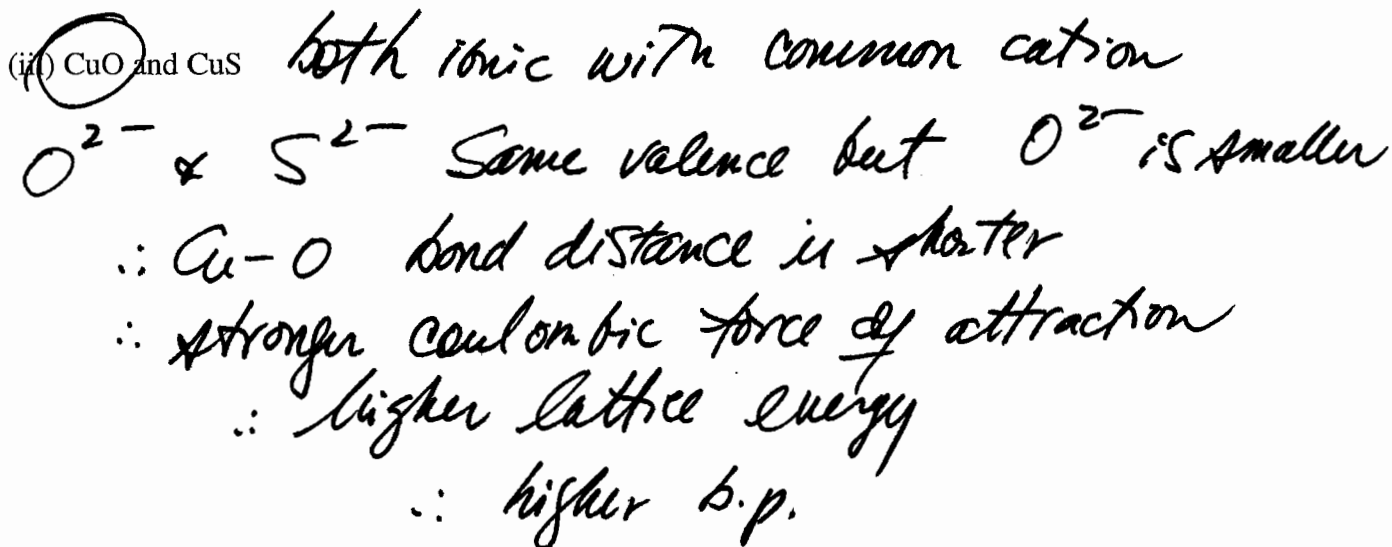 (iii) CuO and CuS both ionic with common cation
O²⁻ & S²⁻ Same valence but O²⁻ is smaller
∴ Cu-O bond distance is shorter
∴ stronger coulombic force of attraction
∴ higher lattice energy
∴ higher b.p.